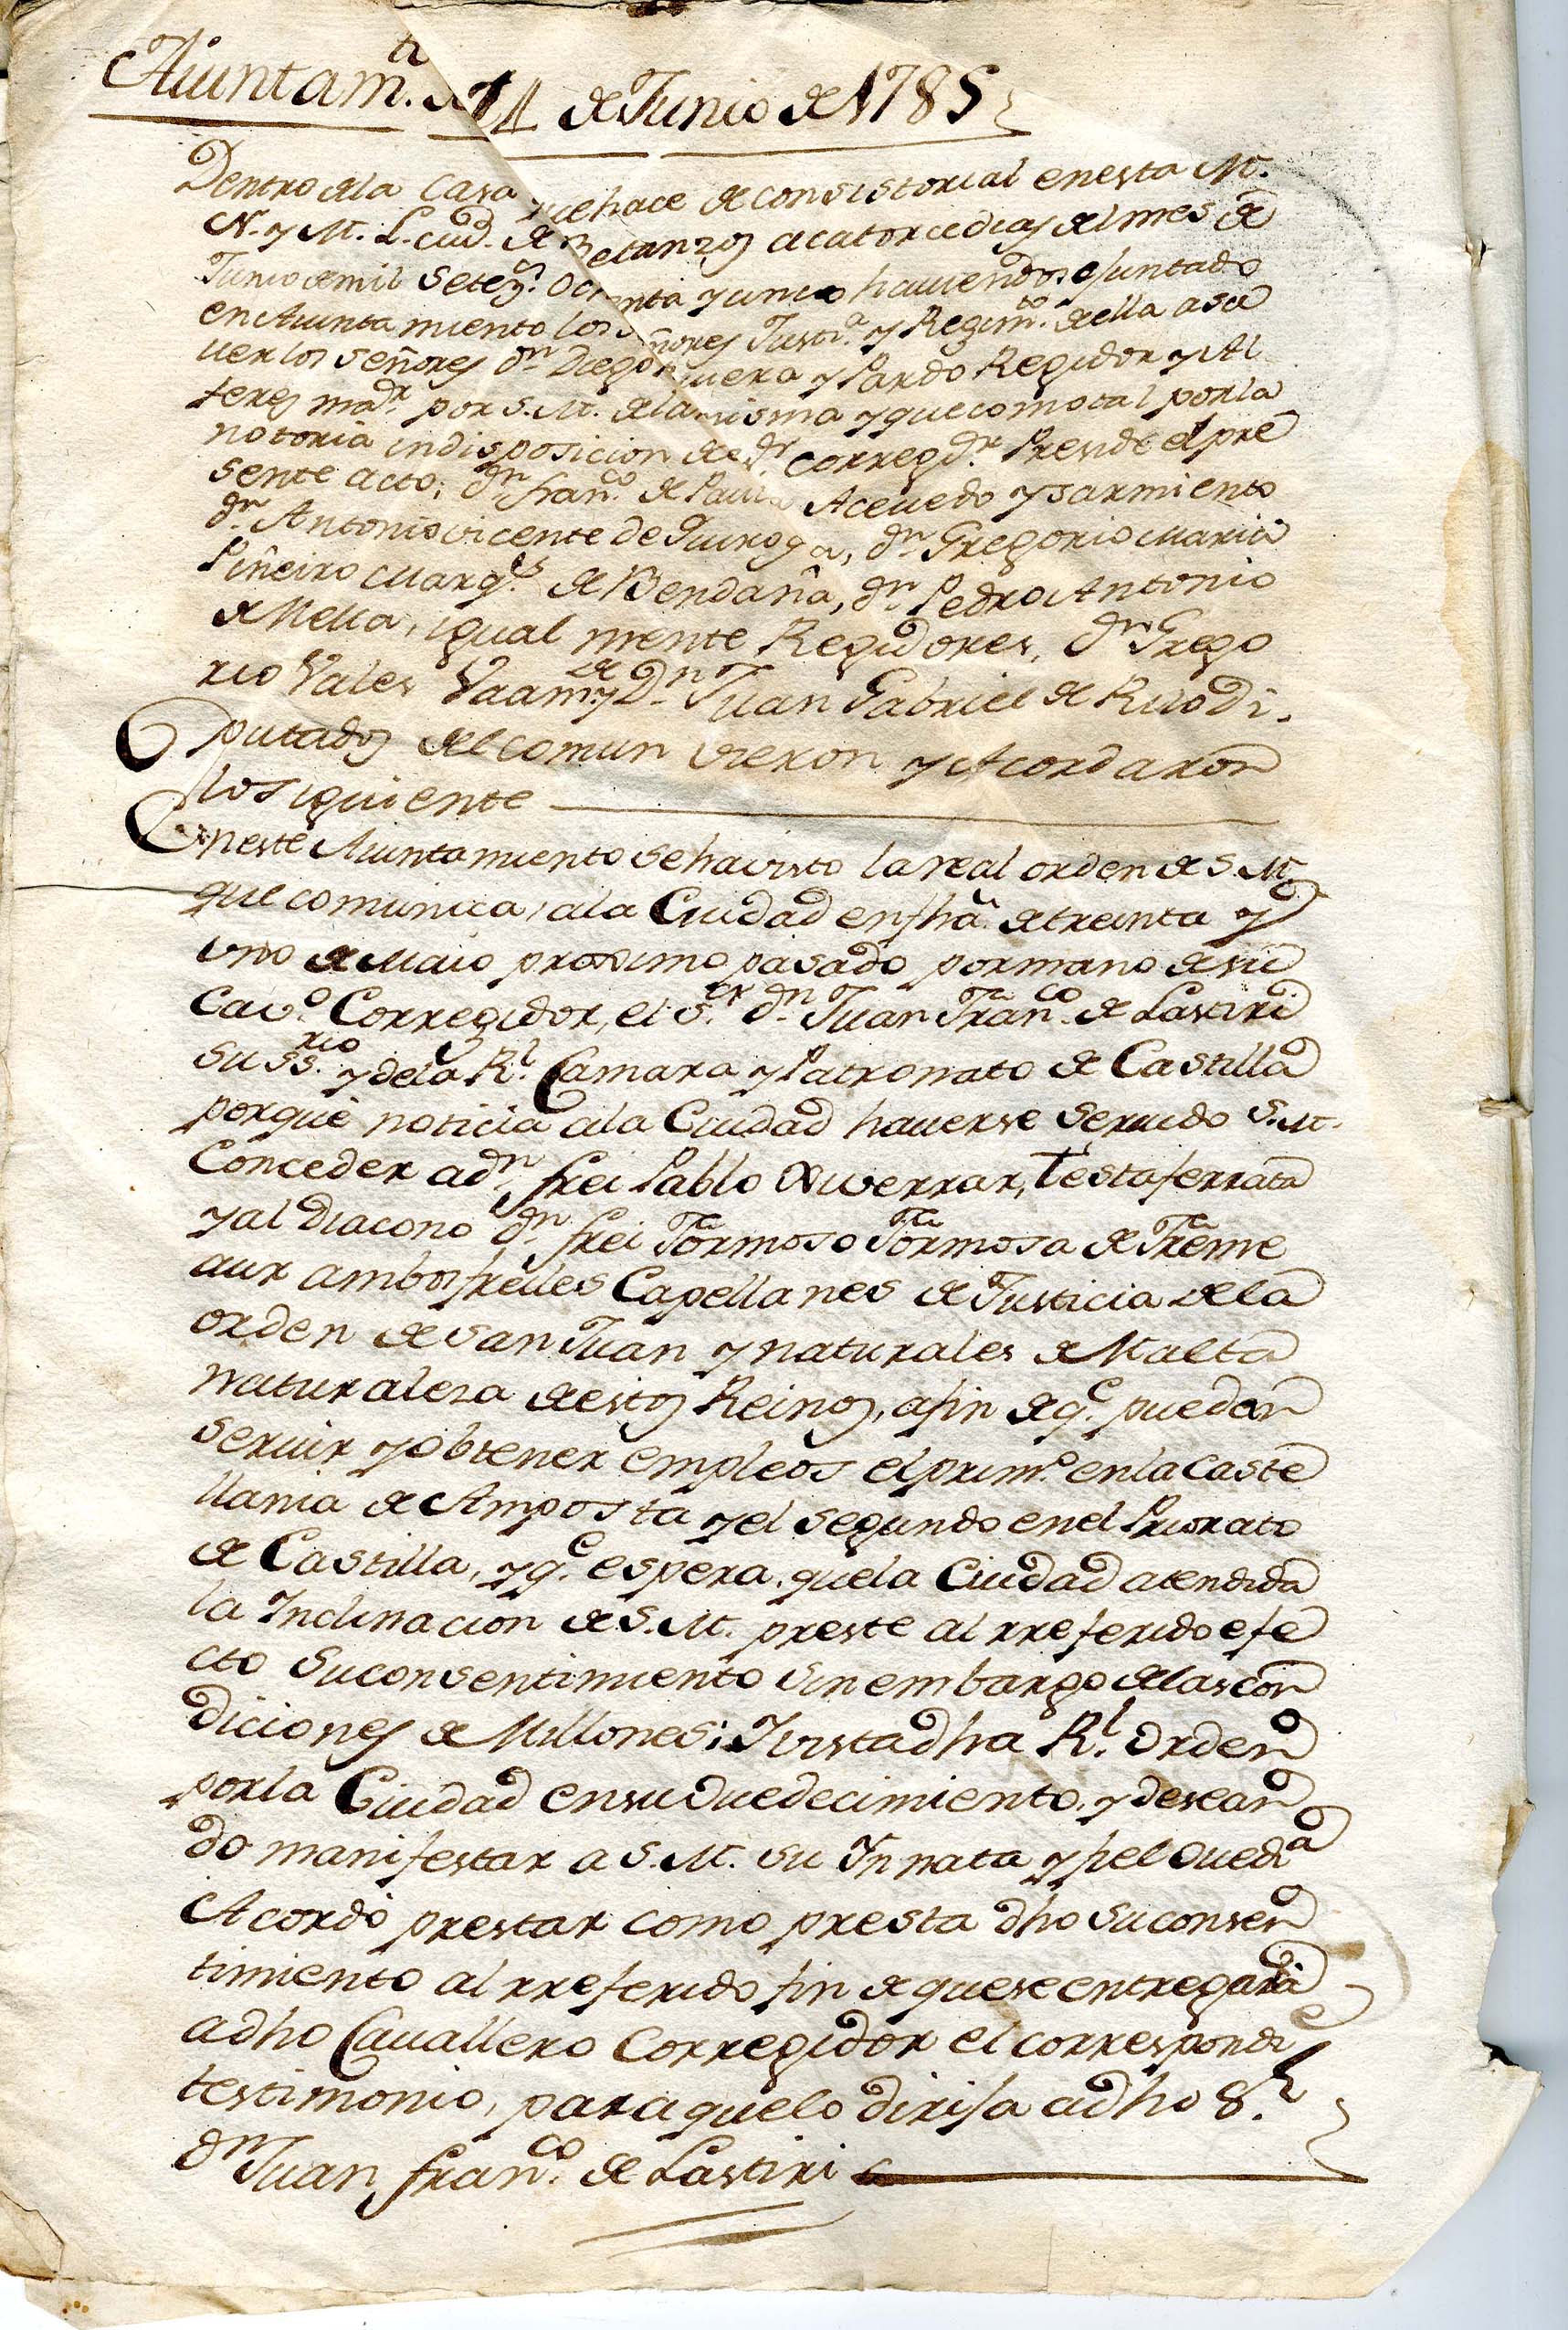 Aiuntam.to de 14 de Junio de 1785
Dentro de la Casa que hace de Consistorial en esta M.
N. y M. L. ciud. de Betanzos a catorce dias del mes de
Junio de mil setez.s ochenta y cinco haviendose juntado
en Aiuntamiento los señores Just.a y Regim.to de ella a sa
uer los señores dn Diego y Pardo Regidor y Al
ferez maor por S. M. de la misma y que como tal por la
notoria indisposicion de el Sr. Corregdor Preside el pre
sente acto; dn franco de Paula Acevedo y sarmiento
dn Antonio vicente de Quiroga, dn Gregorio Maria
Piñeiro Marq.s de Bendaña, dn Pedro Antonio
de Mella, igual mente Regidores, dn Grego
rio Vales Vaamde y Dn Juan Gabriel de Rilo Di-
putados del comun vieron y Acordaron
lo siguiente
En este Aiuntamiento se ha visto la real orden de S. M.
que comunica a la Ciudad en fha de treinta y
uno de Maio proximo pasado por mano de su
Cavo. Corregidor, el Sr. dn Juan Franco de Lastiri
su ssrio y de la Rl. Camara y Patronato de Castilla
por que noticia a la Ciudad haverse servido S. M.
Conceder a dn frei Pablo Xiverrar, Testaferrata
y al Diacono dn frei Formoso Formosa de Freme
aur ambos freiles Capellanes de Justicia de la
orden de San Juan y naturales de Malta
naturaleza de estos Reinos, a fin de qe pueden
servir y obtener empleos el primo en la Caste
llania de Amposta y el segundo en el Priorato
de Castilla, y qe espera que la Ciudad atendida
la Inclinacion de S. M. preste al rreferido efe
cto su consentimiento sin embargo de las con
diciones de Millones; Y vista dha Rl. Orden
por la Ciudad en su ovedecimiento, y desean
do manifestar a S. M. su Ynnata y fiel ovedia
Acordó prestar como presta dho su consen
timiento al rreferido fin de que se entregará
a dho Cavallero Corregidor el correspondte
testimonio, para que lo dirija a dho Sr.
dn Juan franco de Lastiri